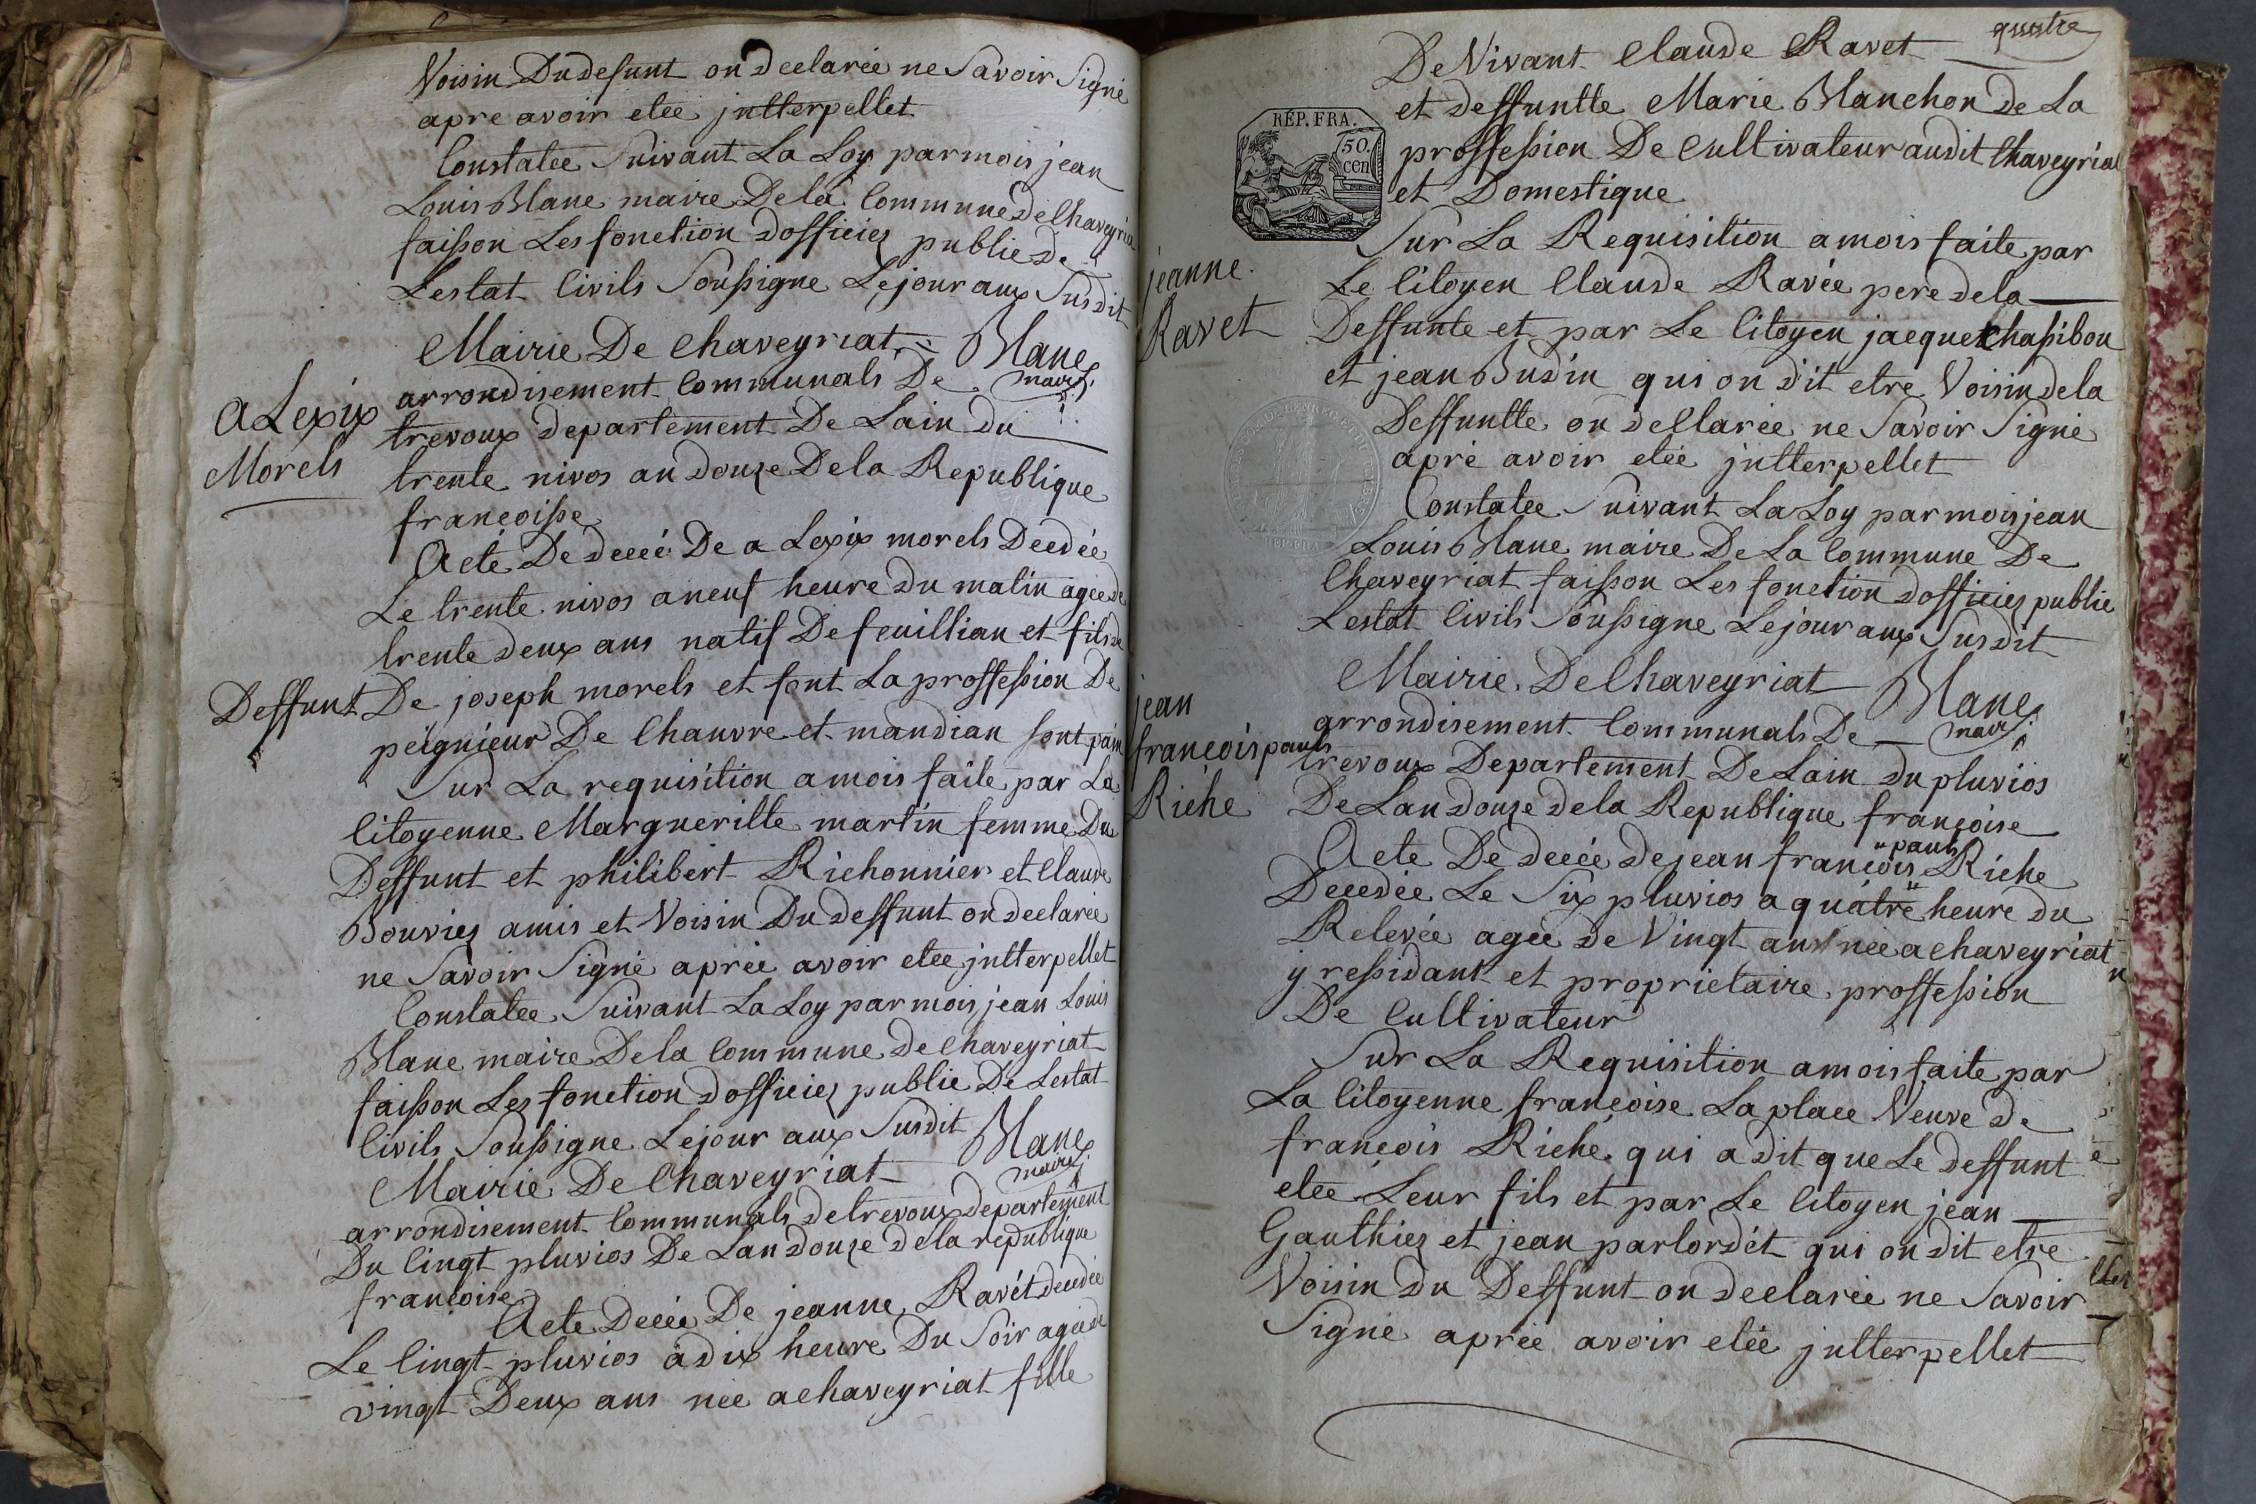 Voisin Du defunt on declarée ne Savoir Signé
apre avoir etée jntterpellet
Constatée Suivant La Loy par mois jean
Louis Blanc maire De la Commune de Chaveyria
faisson Les fonction dofficiez public de
Lestat Civils Soussigne Le jour aux Susdit
Mairie De Chaveyriat Blanc
maire
arrondisement Communals De
ALexix
Morels
trevoux departement De Lain du
trente nivos an douze De la Republique
francoisse
Acte De decée De aLexix morels Decdée
Le trente nivos a neuf heure Du matin agée de
trente deux ans natif De feuillian et fils de
Deffunt De joseph morels et font La proffession De
peignieur De Chanvre et mandian sont pain
Sur La requisition a mois faite par La
Citoyenne Margueritte martin femme Du
Deffunt et philibert Richonnier et Claude
Bouviez amis et Voisin Du deffunt on declarée
ne Savoir Signé aprée avoir etée jntterpellet
Constatée Suivant La Loy par mois jean Louis
Blanc maire De la Commune de Chaveyriat
faisson Les fonction dofficiez public De Lestat
Civils Soussigne Le jour aux Susdit Blanc
maire
Mairie De Chaveyriat
arrondisement Communals de trevoux departement
Du Cingt pluvios De Lan douze de la republique
francoise
Acte Decée De jeanne Ravét decedée
Le Cingt pluvios à dix heure Du Soir agée de
vingt Deux ans née a chaveyriat fille
quatre
De Vivant Claude Ravet
et deffuntte Marie Blanchon de La
proffession De Cultivateur audit Chaveyriat
et Domestique
RÉP. FRA.
50
cen
Sur La Requisition a mois faite par
jeanne
Ravet
Le Citoyen Claude Ravée pere de la
Deffunte et par Le Citoyen jacquet Chassibou
et jean Budin qui on dit etre Voisin de la
Deffuntte on declarée ne Savoir Signé
apré avoir etée jntterpellet
Constatée Suivant La Loy par mois jean
Louis Blanc maire De La Commune De
Chaveyriat faisson Les fonction dofficiez public
Lestat Civils Soussigne Le jour aux Susdit
Mairie De Chaveyriat Blanc
maire
jean
francois pauls
Riche
arrondisement Communals De
trevoux Departement De Lain du pluvios
De Lan douze de la Republique françoise
Acte De decée de jean francois " pauls " Riche
Decedée Le Six pluvios a quatre heure du
Relevée agée de Vingt ans née a chaveyriat
y ressidant et proprietaire proffession
De Cultivateur
Sur La Requisition a mois faite par
La Citoyenne françoise La place Veuve de
francois Riche qui a dit que Le deffunt
etée Leur fils et par Le Citoyen jean
Gauthiez et jean parlordét qui on dit etre
Voisin du Deffunt on declarée ne Savoir
Signé aprée avoir etée jntterpellet